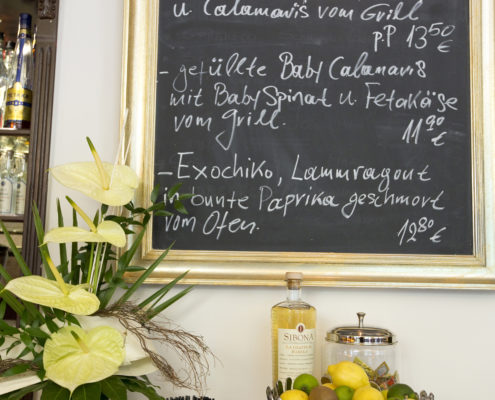 u. Calamaris vom Grill
p.P 13⁵⁰ €
- gefüllte Baby Calamaris
mit Baby Spinat u. Fetakäse
vom Grill.
11⁹⁰ €
- Exochiko, Lammragout
in bunte Paprika geschmort
vom Ofen.
12⁸⁰ €
SIBONA